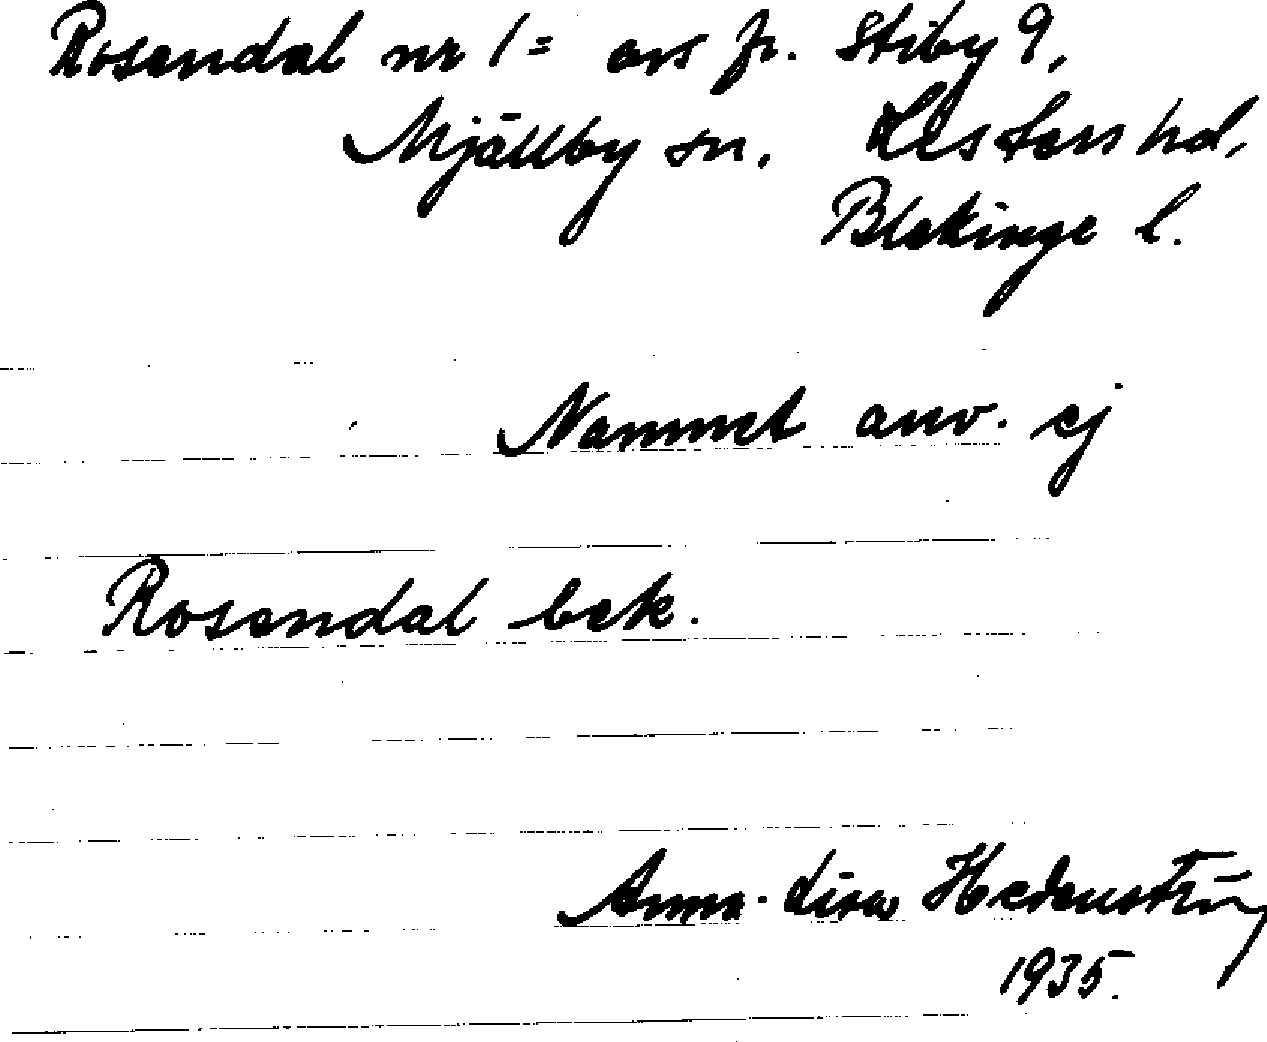 Rosendal nr 1 = avs fr. Stiby 9,
Mjällby sn. Listers hd,
Blekinge l.
Namnet anv. ej
Rosendal bek.
Anna-Lisa Hedenström
1935.